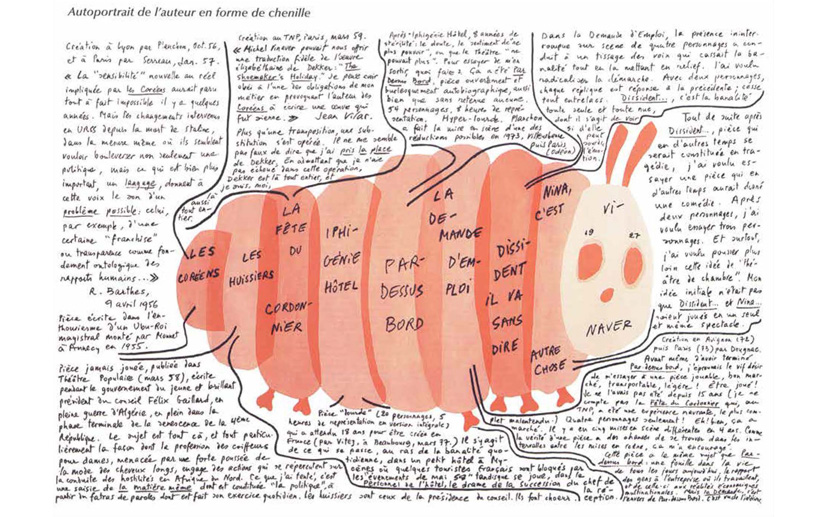 Autoportrait de l'auteur en forme de chenille
Création à Lyon par Planchon, Oct. 56,
et à Paris par Serreau, Jan. 57.
« La "sensibilité" nouvelle au réel
impliquée par les Coréens aurait paru
tout à fait impossible il y a quelques
années. Mais les changements intervenus
en URSS depuis la mort de Staline,
dans la mesure même où ils semblent
vouloir bouleverser non seulement une
politique, mais ce qui est bien plus
important, un langage, donnent à
cette voix le son d'un
problème possible ; celui,
par exemple, d'une
certaine "franchise"
ou transparence comme fon-
dement ontologique des
rapports humains... »
R. Barthes,
9 avril 1956
Pièce écrite dans l'en-
thousiasme d'un Ubu-Roi
magistral monté par Monnet
à Annecy en 1955.
Création au TNP, Paris, mars 59.
« Michel Vinaver pouvait nous offrir
une traduction fidèle de l'œuvre
élisabéthaine de Dekker : "The
Shoemaker's Holiday." Je peux avoir
obéi à l'une des obligations de mon
métier en provoquant l'auteur des
Coréens à écrire une œuvre qui
fût sienne. » Jean Vilar.
Plus qu'une transposition, une sub-
stitution s'est opérée. Il ne me semble
pas faux de dire que j'ai pris la place
de Dekker. En admettant que je n'aie
pas échoué dans cette opération,
Dekker est là tout entier, et
je suis, moi,
aussi
tout en-
tier.
Après Iphigénie Hôtel, 8 années de
stérilité : le doute, le sentiment de "ne
plus pouvoir", ou que le théâtre "ne
pouvait plus". Pour essayer de m'en
sortir quoi faire ? Ça a été Par-
dessus bord, pièce ouvertement et
burlesquement autobiographique, aussi
bien que sans retenue aucune.
54 personnages, 8 heures de repré-
sentation. Hyper-lourde. Planchon
a fait la mise en scène d'une des
réductions possibles en 1973, Villeurbanne
puis Paris
(Odéon)
Dans la Demande d'Emploi, la présence ininter-
rompue sur scène de quatre personnages a con-
duit à un tissage des voix qui cassait la ba-
nalité tout en la mettant en relief. J'ai voulu
radicaliser la démarche. Avec deux personnages,
chaque réplique est réponse à la précédente ; cesse
tout entrelacs. Dissident..., c'est la banalité
toute seule et toute nue,
dont il s'agit de voir
si d'elle
peut
sourdre
l'émo-
tion.
Tout de suite après
Dissident..., pièce qui
en d'autres temps se
serait constituée en tra-
gédie, j'ai voulu es-
sayer une pièce qui en
d'autres temps aurait donné
une comédie. Après
deux personnages, j'ai
voulu essayer trois per-
sonnages. Et surtout,
j'ai voulu pousser plus
loin cette idée de "thé-
âtre de chambre". Mon
idée initiale n'était pas
que Dissident... et Nina...
soient joués en un seul
et même spectacle.
LES
CORÉENS
LES
HUISSIERS
LA
FÊTE
DU
CORDON-
NIER
IPHI-
GÉNIE
HÔTEL
PAR-
DESSUS
BORD
LA
DE-
MANDE
D'EM-
PLOI
DISSI-
DENT
IL VA
SANS
DIRE
NINA,
C'EST
AUTRE
CHOSE
VI-
19 27
NAVER
Pièce jamais jouée, publiée dans
Théâtre Populaire (mars 58), écrite
pendant le gouvernement du jeune et brillant
président du conseil Félix Gaillard, en
pleine guerre d'Algérie, en plein dans la
phase terminale de la sénescence de la 4ème
République. Le sujet est tout ça, et tout particu-
lièrement la façon dont la profession des coiffeurs
pour dames, menacée par une forte poussée de
la mode des cheveux longs, engage des actions qui se répercutent sur
la conduite des hostilités en Afrique du Nord. Ce que j'ai tenté, c'est
une saisie de la matière même dont est constituée "la politique", à
partir du fatras de paroles dont est fait son exercice quotidien. Les huissiers sont ceux de la présidence du conseil. Ils font chœur.
Pièce "lourde" (20 personnages, 5
heures de représentation en version intégrale)
qui a attendu 18 ans pour être créée en
France (par Vitez, à Beaubourg, mars 77). Il s'agit
de ce qui se passe, au ras de la banalité quo-
tidienne, dans un petit hôtel à My-
cènes où quelques touristes français sont bloqués par
les événements de mai 58 tandis que se joue, dans le
personnel de l'hôtel, le drame de la succession du chef de
la ré-
ception.
Création en Avignon (72)
puis Paris (73) par Dougnac.
Avant même d'avoir terminé
Par-dessus bord, j'éprouvais le vif désir
de m'essayer à une pièce jouable, bon mar-
ché, transportable, légère ! Être joué !
Je ne l'avais pas été depuis 15 ans (je ne
compte pas la Fête du Cordonnier qui, au
TNP, a été une expérience navrante, le plus com-
plet malentendu.) Quatre personnages seulement ! Eh bien, ça a
marché. Il y a eu cinq mises en scène différentes en 4 ans. Comme
la vérité d'une pièce a des chances de se trouver dans les in-
tervalles entre les mises en scène, ça m'a encouragé.
Cette pièce a le même sujet que Par-
dessus bord : une fouille dans la vie
de tous les jours aujourd'hui, le rapport
des gens à l'entreprise où ils travaillent,
et de celle-ci aux réalités économiques
multinationales. Mais la Demande, c'est
l'envers de Par-dessus Bord. C'est vu de l'ombre